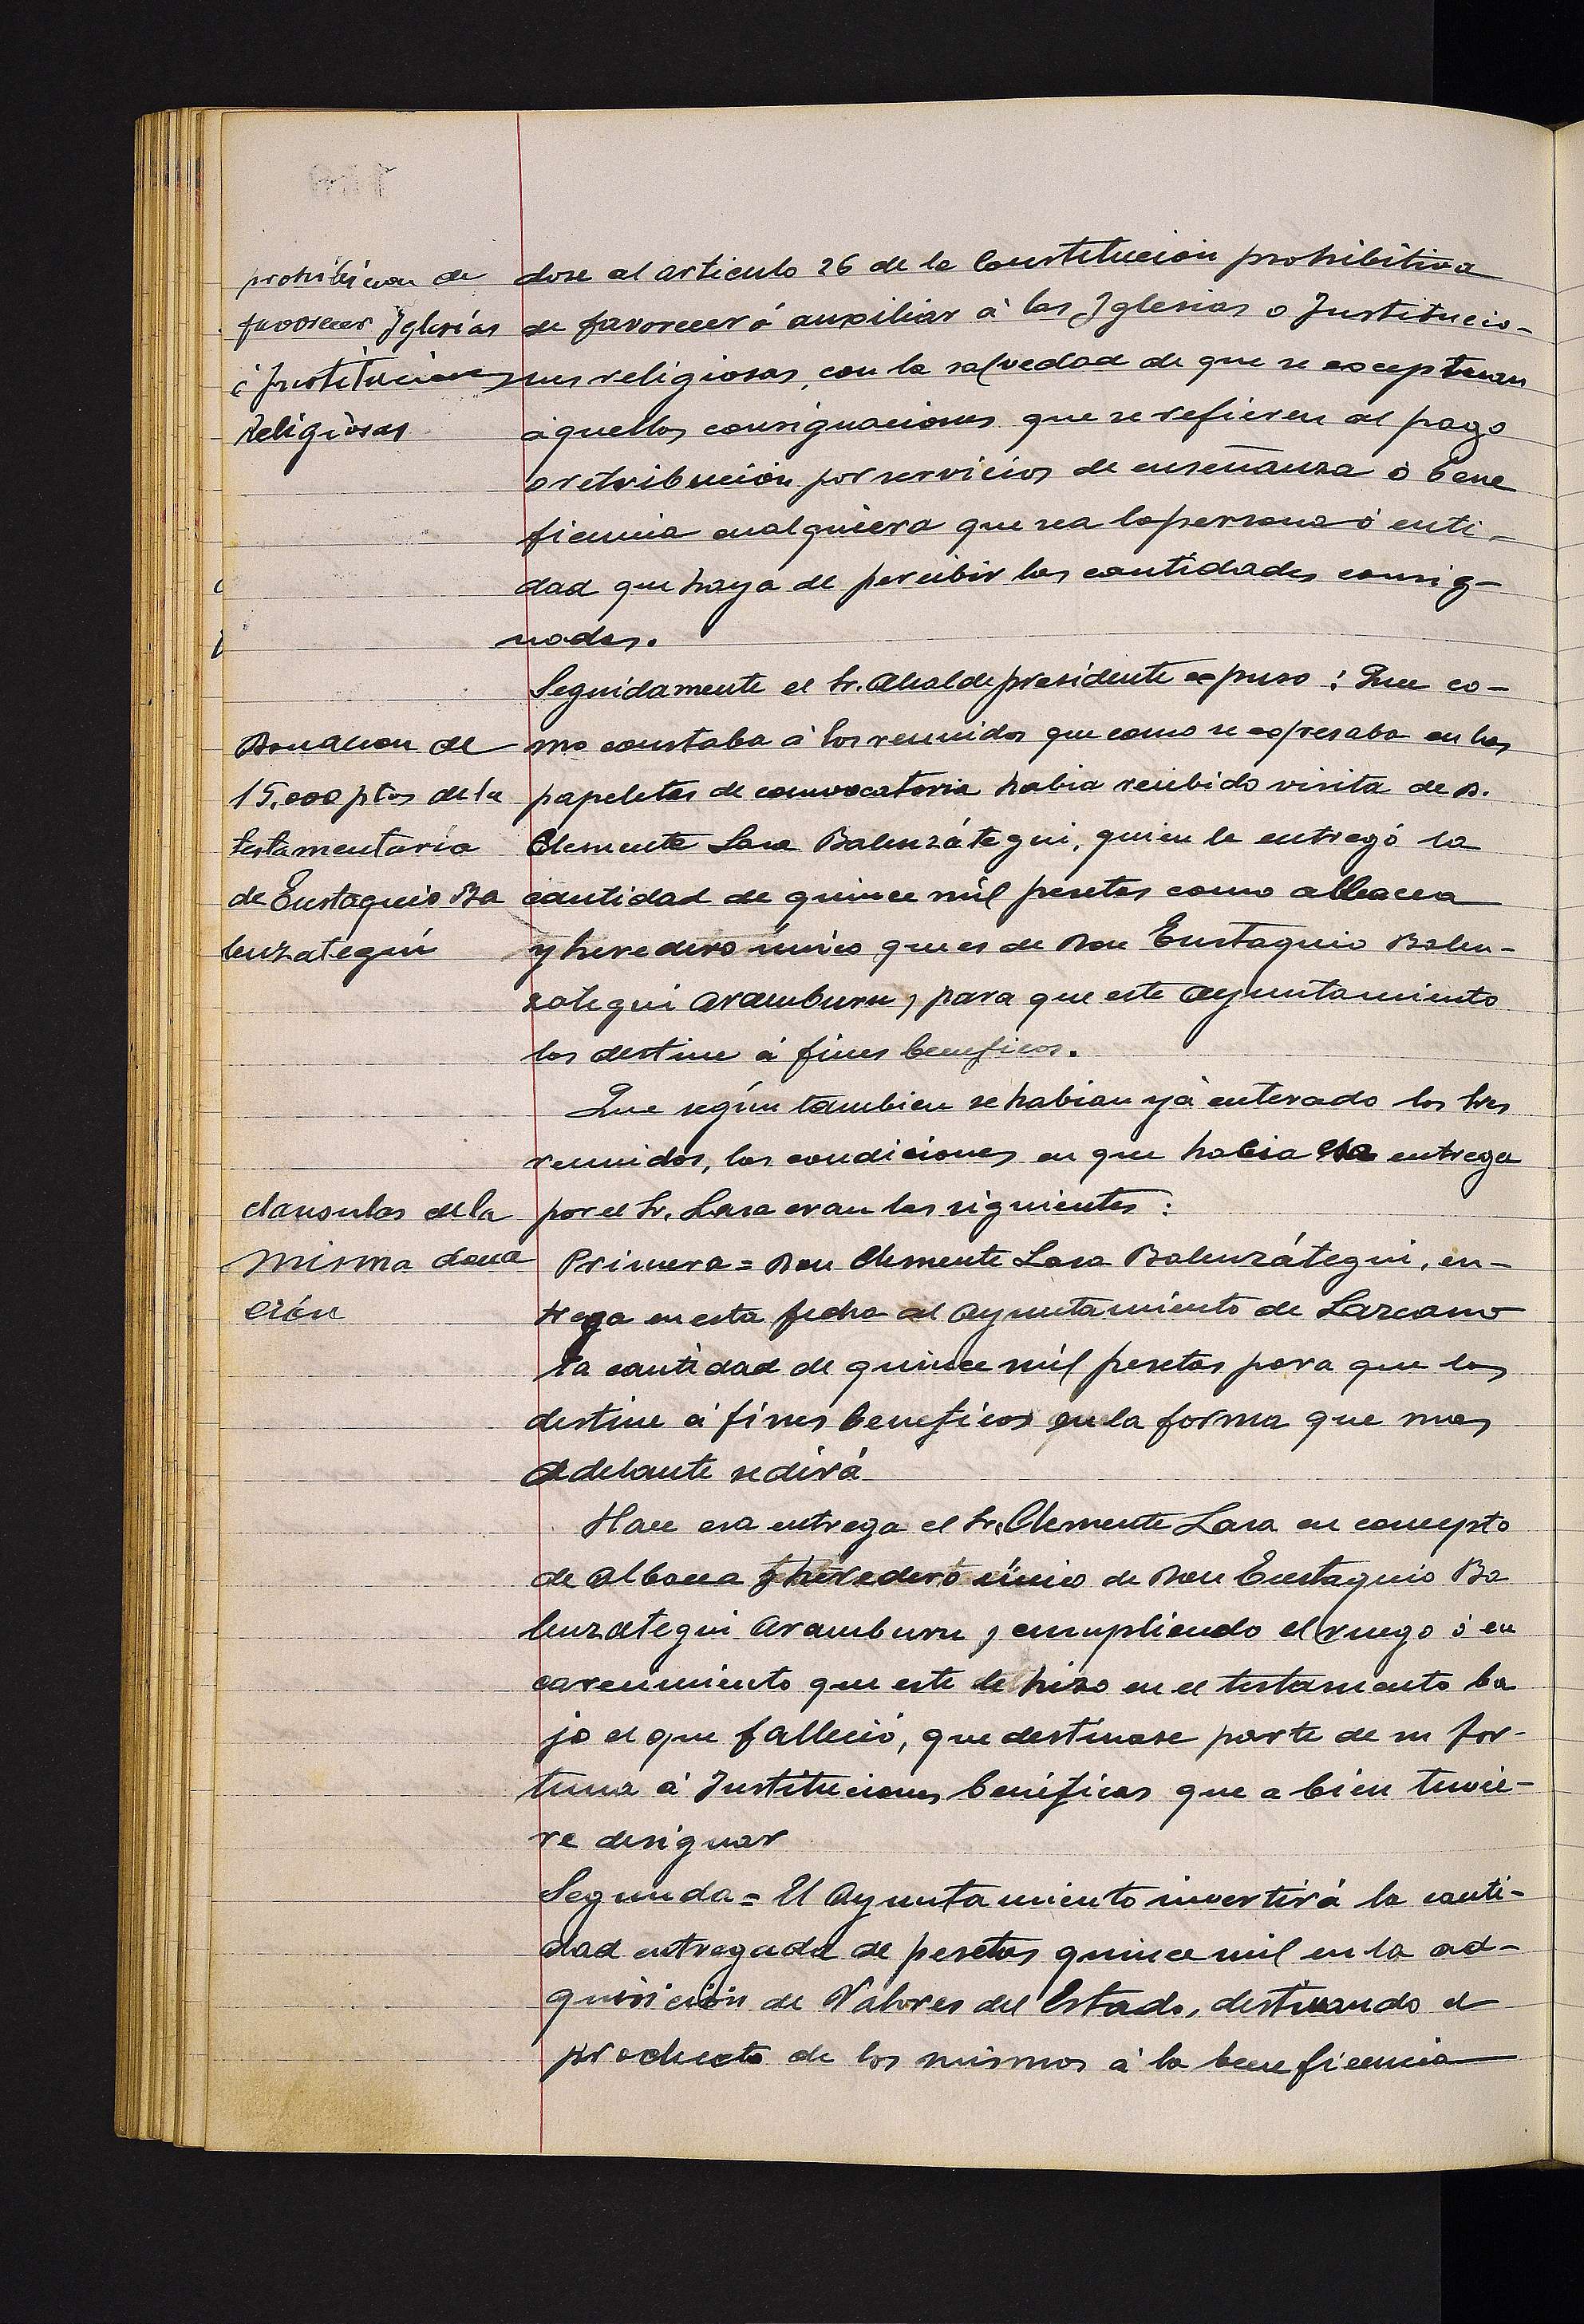 prohibicion de
favorecer Iglesias
é Instituciones
Religiosas
dose al articulo 26 de la Constitución prohibitiva
de favorecer ó auxiliar á las Iglesias o Institucio-
nes religiosas, con la salvedad de que se exceptuan
aquellas consignaciones que se refieren al pago
o retribución por servicios de enseñanza ó bene
ficencia cualquiera que sea la persona ó enti-
dad que haya de percibir las cantidades consig-
nadas.
Seguidamente el Sr. Alcalde presidente expuso: Que co-
Donacion de
15.000 ptas de la
testamentaria
de Eustaquio Ba
lenzategui
mo constaba á los reunidos que como se expresaba en las
papeletas de convocatoria habia recibido visita de D.
Clemente Lasa Balenzátegui, quien le entregó la
cantidad de quince mil pesetas como albacea
y heredero único que es de Don Eustaquio Balen-
zategui Aramburu, para que este Ayuntamiento
las destine á fines beneficos.
Que según tambien se habian yá enterado los Sres
reunidos, las condiciones en que habia esa entrega
clausulas de la
misma dona
ción
por el Sr. Lasa eran las siguientes:
Primera = Don Clemente Lasa Balenzátegui, en-
trega en esta fecha al Ayuntamiento de Lazcano
la cantidad de quince mil pesetas para que las
destine á fines beneficos en la forma que mas
adelante se dirá
Hace esa entrega el Sr. Clemente Lasa en concepto
de albacea y heredero único de Don Eustaquio Ba
lenzategui Aramburu, cumpliendo el ruego ó en
carecimiento que este le hizo en el testamento ba
jo el que falleció, que destinase parte de su for-
tuna á Instituciones benéficas que a bien tuvie-
re designar
Segunda = El Ayuntamiento invertirá la canti-
dad entregada de pesetas quince mil en la ad-
quisición de Valores del Estado, destinando el
producto de los mismos á la beneficencia